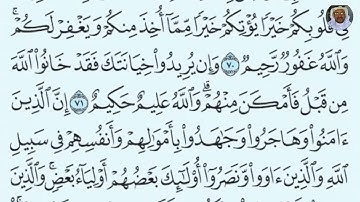 فِى قُلُوبِكُمْ خَيْرًا يُؤْتِكُمْ خَيْرًا مِّمَّآ أُخِذَ مِنكُمْ وَيَغْفِرْ لَكُمْ ۗ
وَٱللَّهُ غَفُورٌ رَّحِيمٌ ٧٠ وَإِن يُرِيدُوا۟ خِيَانَتَكَ فَقَدْ خَانُوا۟ ٱللَّهَ
مِن قَبْلُ فَأَمْكَنَ مِنْهُمْ ۗ وَٱللَّهُ عَلِيمٌ حَكِيمٌ ٧١ إِنَّ ٱلَّذِينَ
ءَامَنُوا۟ وَهَاجَرُوا۟ وَجَٰهَدُوا۟ بِأَمْوَٰلِهِمْ وَأَنفُسِهِمْ فِى سَبِيلِ
ٱللَّهِ وَٱلَّذِينَ ءَاوَوا۟ وَّنَصَرُوٓا۟ أُو۟لَٰٓئِكَ بَعْضُهُمْ أَوْلِيَآءُ بَعْضٍ ۚ وَٱلَّذِينَ